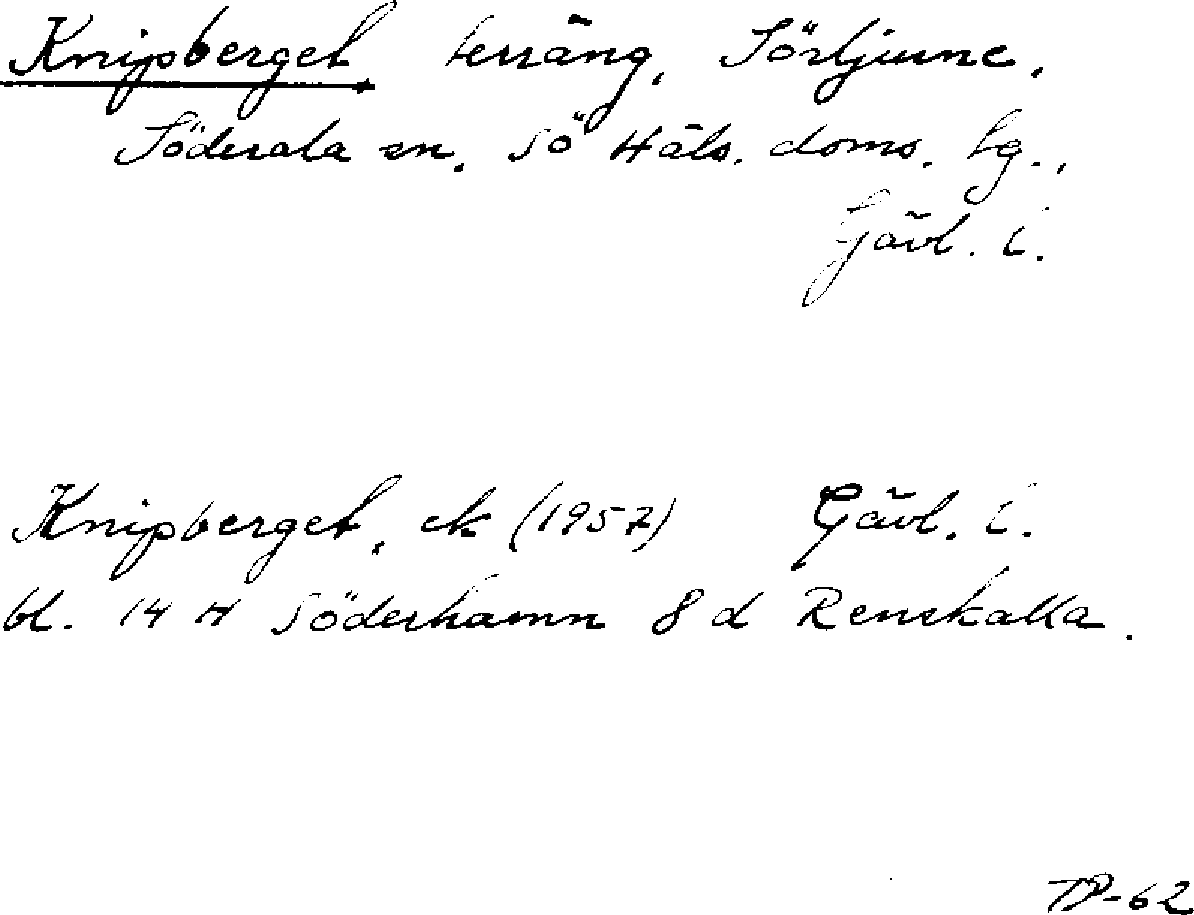 Knipberget, terräng, Sörljusne,
Söderala sn, Sö Häls. doms. tg.,
Gävl. l.
Knipberget, ek (1957) Gävl. l.
bl. 14 H Söderhamn 8 d Renskalla.
TP-62